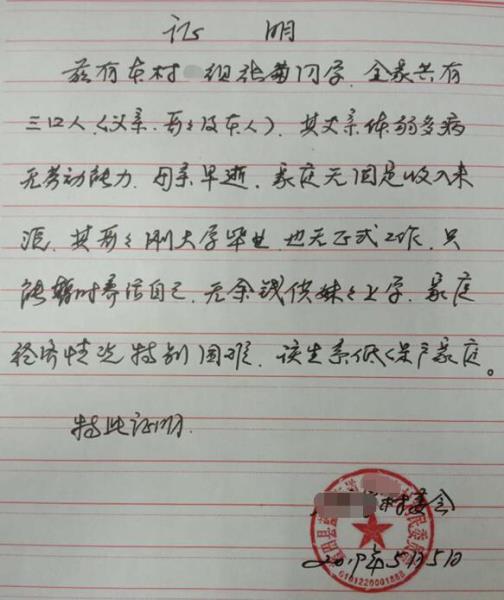 证 明
兹有本村 组张菊同学，全家共有
三口人（父亲、哥哥及本人）。其父亲体弱多病
无劳动能力，母亲早逝，家庭无固定收入来
源，其哥哥刚大学毕业，也无正式工作，只
能暂时养活自己，无余钱供妹妹上学，家庭
经济情况特别困难，该生系低保户家庭。
特此证明
村委会
2019年5月5日
6101220001888